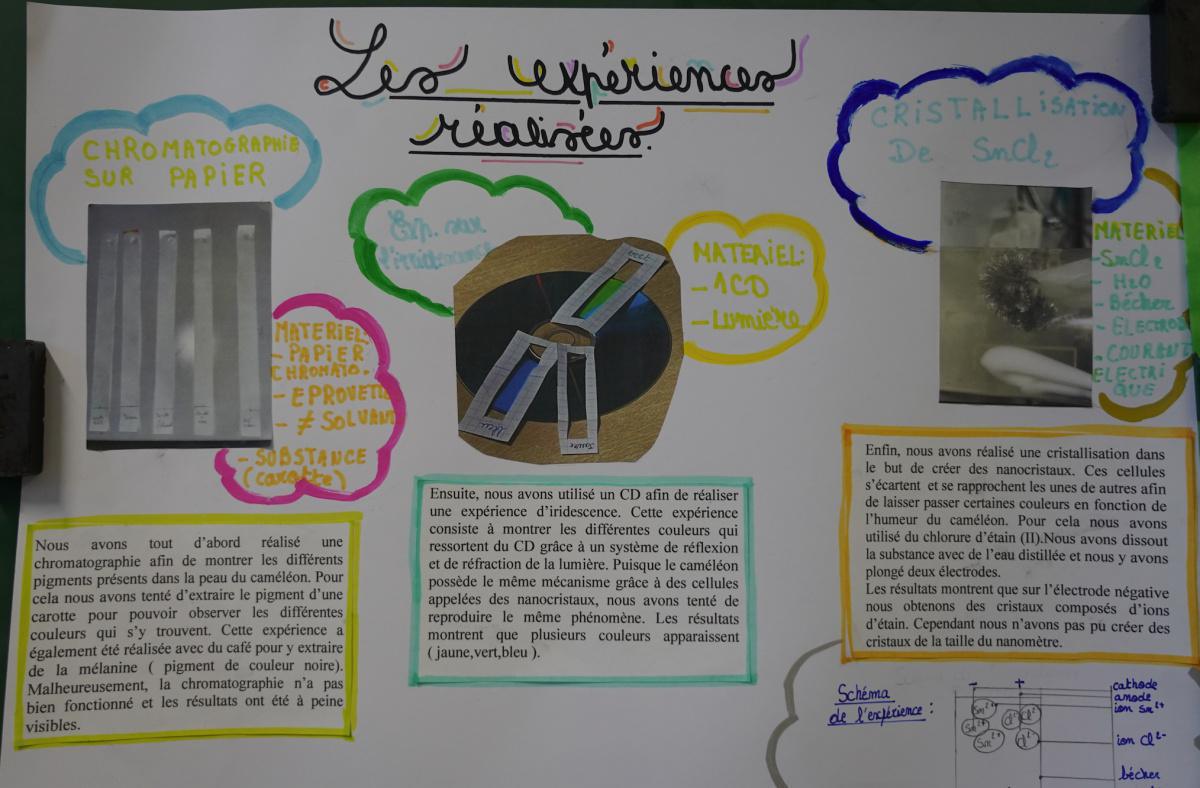 Les expériences
réalisées.
CHROMATOGRAPHIE
SUR PAPIER
MATERIEL:
- PAPIER
CHROMATO.
- EPROVETTE
- ≠ SOLVANT
- SUBSTANCE
(carotte)
Nous avons tout d'abord réalisé une
chromatographie afin de montrer les différents
pigments présents dans la peau du caméléon. Pour
cela nous avons tenté d'extraire le pigment d'une
carotte pour pouvoir observer les différentes
couleurs qui s'y trouvent. Cette expérience a
également été réalisée avec du café pour y extraire
de la mélanine ( pigment de couleur noire).
Malheureusement, la chromatographie n'a pas
bien fonctionné et les résultats ont été à peine
visibles.
Exp. sur
l'iridescence
vert
bleu
jaune
MATERIEL:
- 1CD
- Lumière
Ensuite, nous avons utilisé un CD afin de réaliser
une expérience d'iridescence. Cette expérience
consiste à montrer les différentes couleurs qui
ressortent du CD grâce à un système de réflexion
et de réfraction de la lumière. Puisque le caméléon
possède le même mécanisme grâce à des cellules
appelées des nanocristaux, nous avons tenté de
reproduire le même phénomène. Les résultats
montrent que plusieurs couleurs apparaissent
( jaune,vert,bleu ).
CRISTALLISATION
De SnCl₂
MATERIEL
- SnCl₂
- H2O
- Bécher
- ELECTROD
. COURANT
ELECTRI
QUE
Enfin, nous avons réalisé une cristallisation dans
le but de créer des nanocristaux. Ces cellules
s'écartent et se rapprochent les unes de autres afin
de laisser passer certaines couleurs en fonction de
l'humeur du caméléon. Pour cela nous avons
utilisé du chlorure d'étain (II).Nous avons dissout
la substance avec de l'eau distillée et nous y avons
plongé deux électrodes.
Les résultats montrent que sur l'électrode négative
nous obtenons des cristaux composés d'ions
d'étain. Cependant nous n'avons pas pu créer des
cristaux de la taille du nanomètre.
Schéma
de l'expérience :
- +
cathode
anode
ion Sn²⁺
Sn²⁺
Sn²⁺
Sn²⁺
Cl²⁻
Cl²⁻
Cl²⁻
ion Cl²⁻
bécher